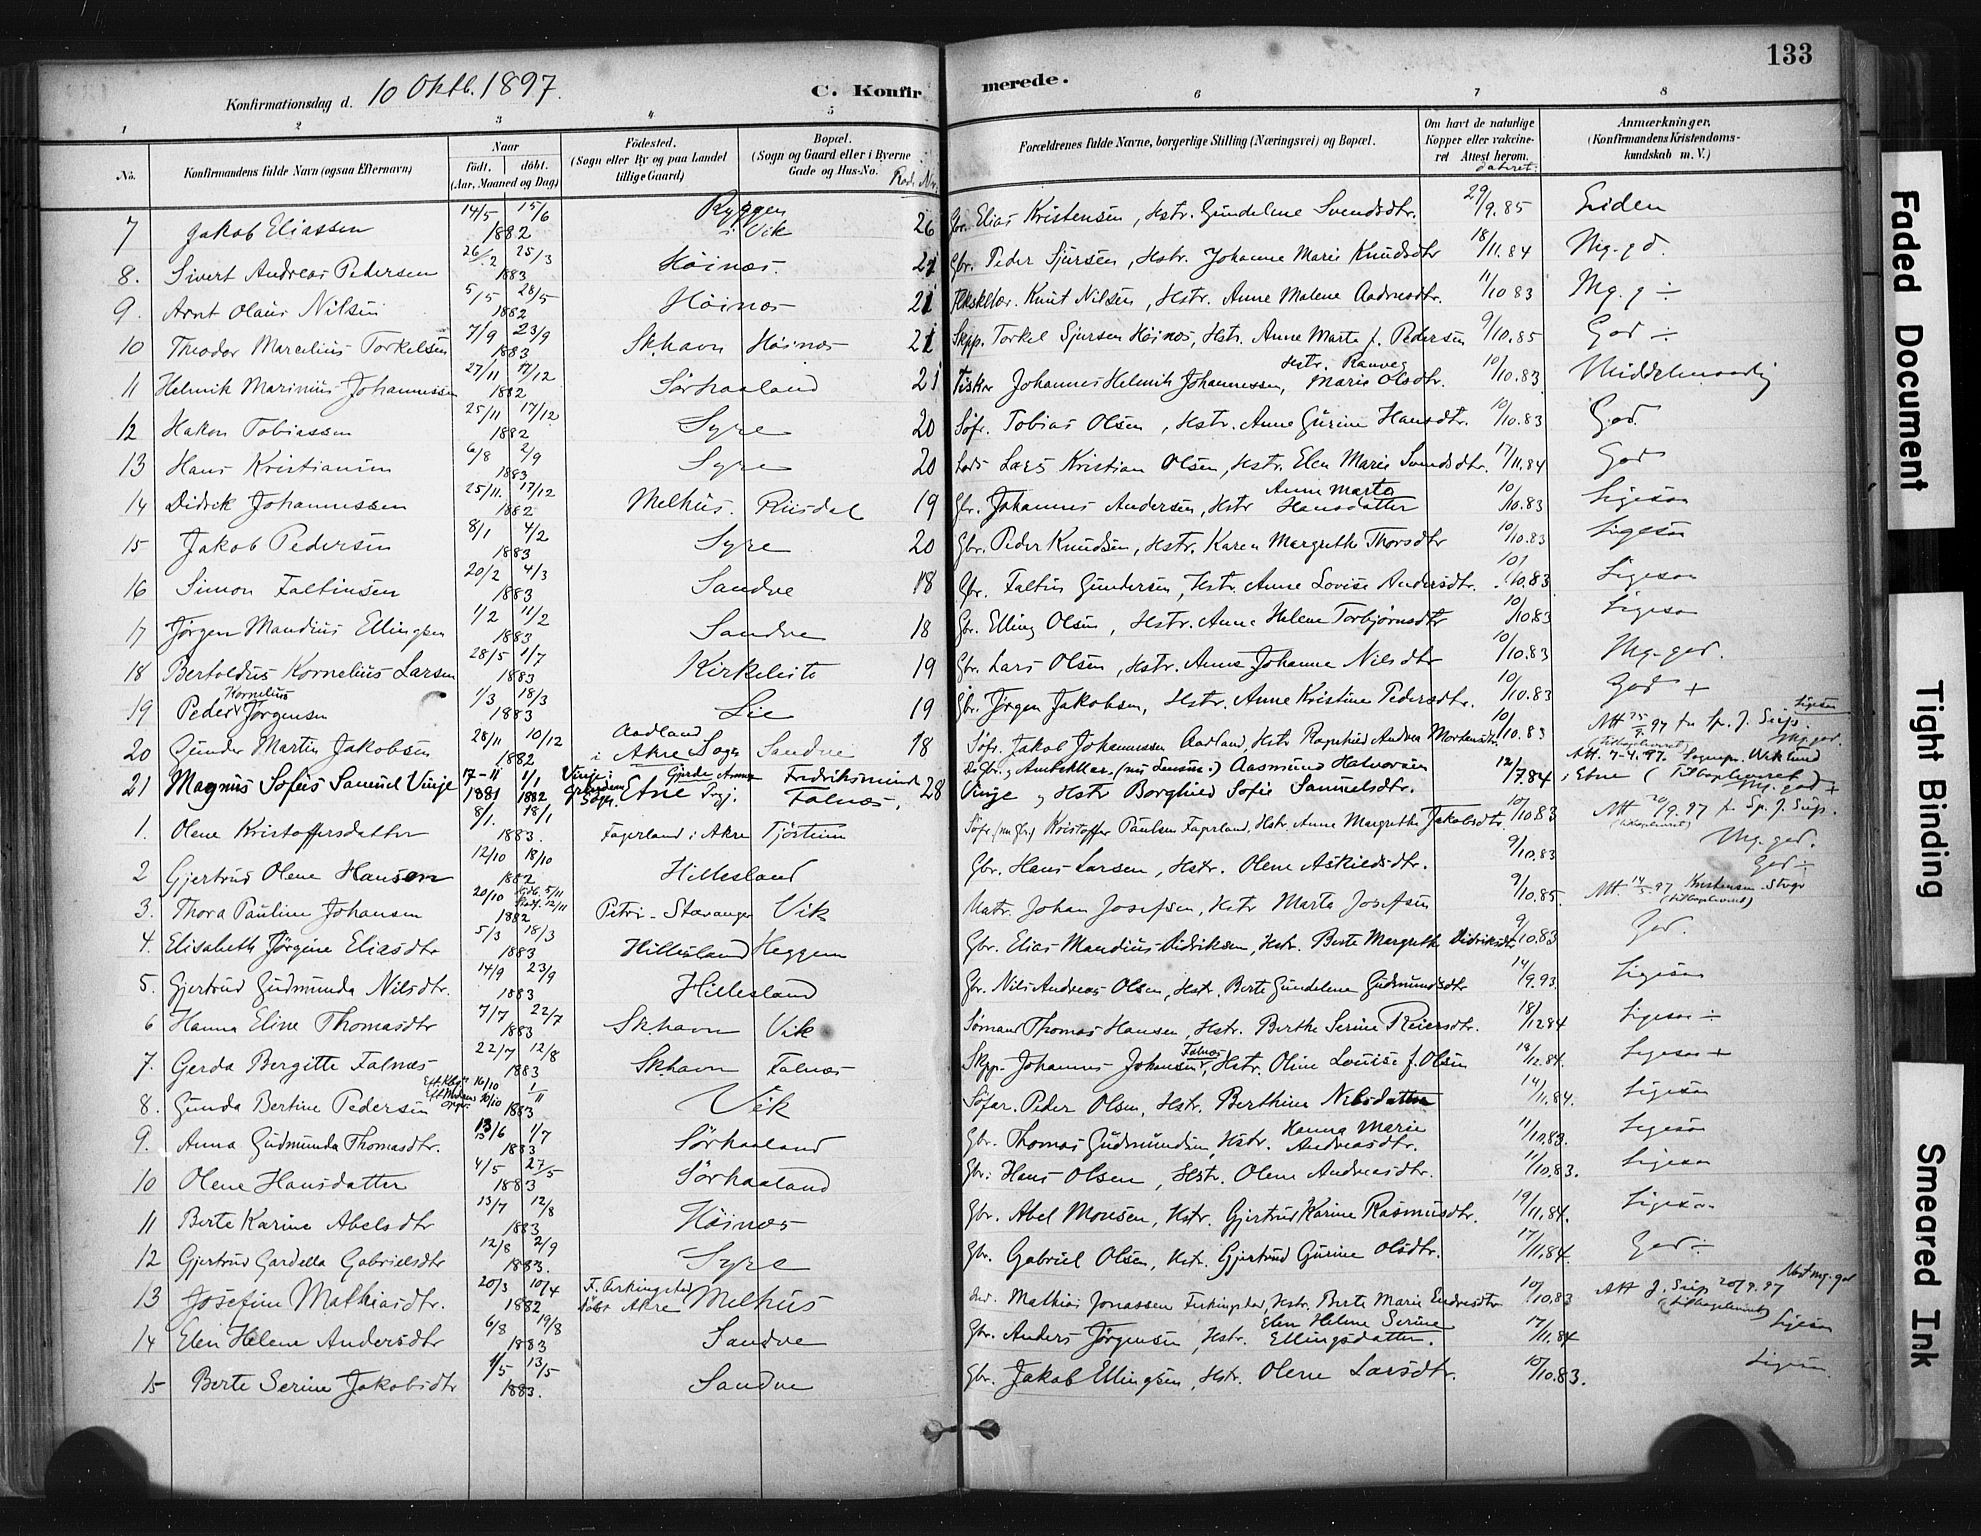 133
Konfirmationsdag d. 10 Oktb. 1897.
C. Konfirmerede.
1 2 3 4 5 6 7 8
No. Konfirmandens fulde Navn (ogsaa Efternavn) Naar født, døbt. (Aar, Maaned og Dag) Fødested. (Sogn eller By og paa Landet tillige Gaard) Bopæl. (Sogn og Gaard eller i Byerne Gade og Hus-No. Rod. Nr. Forældrenes fulde Navne, borgerlige Stilling (Næringsvei) og Bopæl. Om havt de naturlige Kopper eller vakcineret Attest herom. dateret: Anmærkninger. (Konfirmandens Kristendomskundskab m. V.)
7 Jakob Eliassen 14/5 15/6 1882 Ryggen i Vik 26 Gbr. Elias Kristensen, Hstr. Gundelene Svendsdtr. 29/9.85 Liden
8. Sivert Andreas Pedersen 26/2 25/3 1883 Høinæs. 21 Gbr. Peder Sjursen, Hstr. Johanne Marie Knudsdtr 18/11.84 Mg. gd.
9. Arnt Olaus Nilsen 5/5 28/5 1882 Høinæs 21 Knut Nilsen, Hstr. Anne Malene Aadnesdtr. 11/10 83 Mg. g ÷
10 Theodor Marcelius Torkelsen 7/9 23/9 1883 Skhavn Høinæs 21 Skpp. Torkel Sjursen Høinæs, Hstr. Anne Marta f. Pedersen 9/10.85 God ÷
11 Helmik Marinius Johannessen 27/11 17/12 1882 Sørhaaland 21 Fisker Johannes Helmik Johannessen, Hstr. Ranveg Marie Olsdtr. 10/10.83 Middelmaadig
12 Hakon Tobiassen 25/11 17/12 1882 Syre 20 Søfr. Tobias Olsen, Hstr. Anne Gurine Hansdtr. 10/10.83 God.
13 Hans Kristian 6/8 2/9 1883 Syre 20 Lods Lars Kristian Olsen, Hstr. Elen Marie Svendsdtr. 17/11.84 God
14 Didrik Johannessen 25/11. 17/12 1882 Melhus. Risdal 19 Gbr. Johannes Andersen, Hstr Anne Marta Hansdatter 10/10.83 Ligesaa
15 Jakob Pedersen 8/1 4/2 1883 Syre 20 Gbr. Peder Knudsen, Hstr. Karen Margrethe Thorsdtr 10/10.83 Ligesaa
16 Simon Faltinsen 20/2 4/3 1883 Sandve 18 Gbr. Faltin Gundersen, Hstr. Anne Lovise Andersdtr. 10/10.83 Ligesaa
17 Jørgen Mandius Ellingsen 1/2 11/2 1883 Sandve 18 Gbr. Elling Olsen, Hstr. Anne Helene Torbjørnsdtr 10/10.83 Ligesaa
18 Bertoldus Kornelius Larsen 28/5 1/7 1883 Kirkeleite 19 Gbr. Lars Olsen, Hstr. Anne Johanne Nilsdtr 10/10.83 Mg. god.
19 Peder Kornelius Jørgensen 1/3 18/3 1883 Lie 19 Gbr. Jørgen Jakobsen, Hstr. Anne Kristine Pedersdtr. 10/10.83 God +
20 Gunder Martin Jakobsen 28/11 10/12 1882 Aadland i Akre Sogn Sandve 18 Søfr. Jakob Johannessen Aadland, Hstr Ragnhild Andrea Mortensdtr. 10/10.83 Att 25/9 97 fr Sp. J. Ligesaa
21 Magnus Sofus Samuel Vinje 17-11 1881 1/1 1882 Gjerde Etne Prgj. Fredriksminde Falnæs. 28 Aasmund Halvorsen Vinje, Hstr Borghild Sofie Samuelsdtr. 12/7.84 Att. 7-4.97. Sogneprs. Wiklund i Etne (tilbageleveret) Mg. god +
1. Olene Kristoffersdatter 8/1. 18/1 1883. Fagerland i Akre Tjøstem Søfr. Kristoffer Paulsen Fagerland, Hstr. Anne Margrethe Jakobsdtr. 10/10.83 Att 20/9.97 fr. Sp. J. (tilbageleveret) Mg. god.
2 Gjertrud Olene Hansen 12/10 18/10 1882 Hillesland Gbr. Hans Larsen, Hstr. Olene Askildsdtr. 9/10.83 God ÷
3. Thora Pauline Johansen 20/10 Hdb. 5/11 Stadf. 12/11 1882 Petri-Stavanger Vik Matr. Johan Josefsen, Hstr Marta Josefsen 9/10.85. Att. 14/5 97 Kristensen-Stvgr (tilbageleveret)
4. Elisabeth Jørgine Eliasdtr 5/3 18/3 1883 Hillesland Heggem Gbr. Elias Mandius Didriksen, Hstr. Berte Margrethe Didriksdtr. 9/10.83 God.
5. Gjertrud Gudmunda Nilsdtr. 14/9 23/9 1883 Hillesland Gbr. Nils Andreas Olsen, Hstr. Berte Gundelene Gudmundsdtr 14/9.93. Ligesaa
6 Hanna Eline Thomasdtr 7/7 22/7 1883 Skhavn Vik Sømand Thomas Hansen, Hstr. Berthe Serine Reiersdtr. 18/12 84 Ligesaa ÷
7. Gerda Bergitte Falnæs 22/7 12/8 1883 Skhavn Falnæs Skpp. Johannes Johansen Falnæs, Hstr. Oline Louise f. Olsen 18/12.84. Ligesaa +
8. Gunda Bertine Pedersen 16/10 1/11 1883 Vik Søfar. Peder Olsen, Hstr. Berthine Nilsdatter 14/11.84. Ligesaa
9. Anna Gudmunda Thomasdtr. 13/6 1/7 1883 Sørhaaland Gbr. Thomas Gudmundsen, Hstr. Hanna Marie Andreasdtr. 11/10.83. Ligesaa
10 Olene Hansdatter 4/5 27/5 1883 Sørhaaland Gbr. Hans Olsen, Hstr. Olene Andreasdtr. 11/10.83. Ligesaa
11 Berte Karine Abelsdtr 13/7 12/8 1883. Høinæs Gbr. Abel Monsen, Hstr. Gjertrud Karine Rasmusdtr. 19/11.84. Ligesaa
12 Gjertrud Gardella Gabrielsdtr 12/8 2/9 1883. Syre Gbr. Gabriel Olsen, Hstr. Gjertrud Gurine Olsdtr. 17/11.84 God ÷
13 Josefine Mathiasdtr. 20/3 10/4 1882 F. Ferkingstad døbt Akre Melhus Mathias Jonassen Ferkingstad, Hstr. Berte Marie Endresdtr 10/10.83 Att J. 20/9.97 (tilbageleveret) Næst mg. god
14 Elen Helene Andersdtr 6/8 19/8 1883 Sandve Gbr. Anders Jørgensen, Hstr. Elen Helene Serine Ellingsdatter. 17/11.84 Ligesaa
15 Berte Serine Jakobsdtr 1/5 13/5 1883. Sandve Gbr. Jakob Ellingsen, Hstr. Olene Larsdtr. 10/10.83. Ligesaa
Faded Document
Tight Binding
Smeared Ink